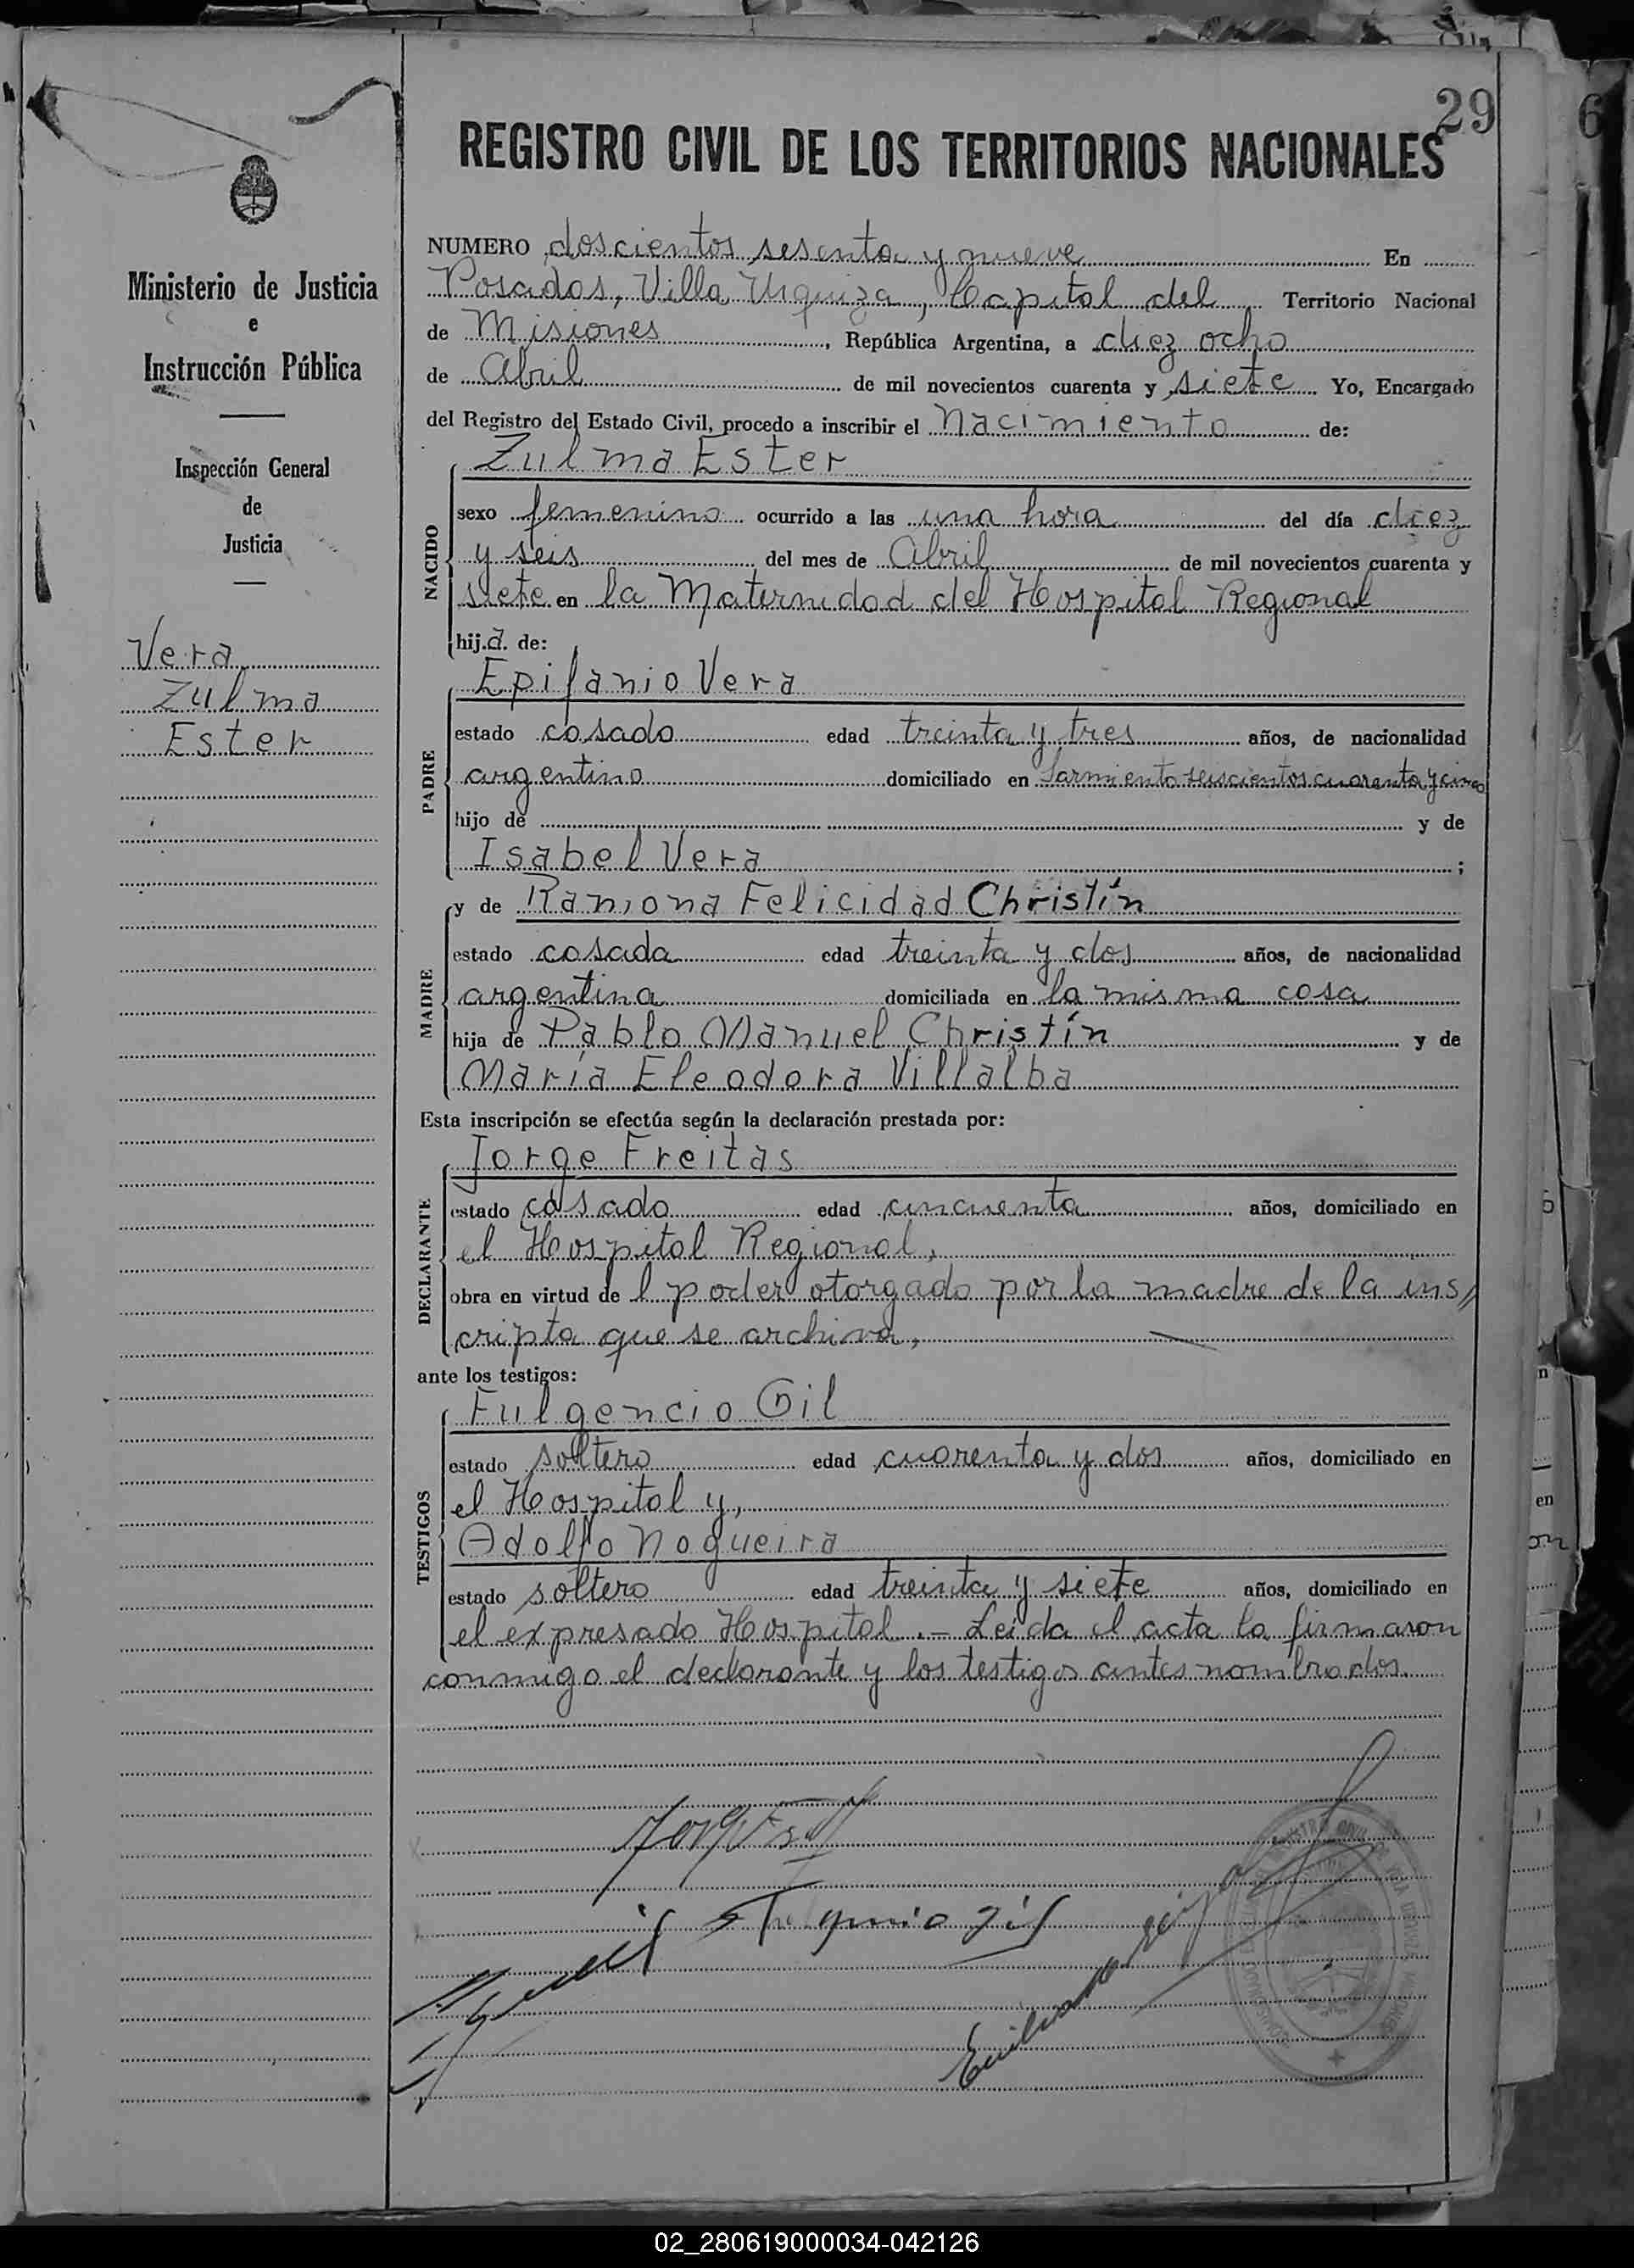 29
6
REGISTRO CIVIL DE LOS TERRITORIOS NACIONALES
Ministerio de Justicia
e
Instrucción Pública
Inspección General
de
Justicia
Vera
Zulma
Ester
NUMERO doscientos sesenta y nueve En
Posadas, Villa Urquiza, Capital del Territorio Nacional
de Misiones, República Argentina, a diez ocho
de Abril de mil novecientos cuarenta y siete Yo, Encargado
del Registro del Estado Civil, procedo a inscribir el nacimiento de:
NACIDO
Zulma Ester
sexo femenino ocurrido a las una hora del día diez
y seis del mes de Abril de mil novecientos cuarenta y
siete en la Maternidad del Hospital Regional
hija de:
PADRE
Epifanio Vera
estado casado edad treinta y tres años, de nacionalidad
argentino domiciliado en Sarmiento seiscientos cuarenta y cinco
hijo de y de
Isabel Vera ;
MADRE
y de Ramona Felicidad Christín
estado casada edad treinta y dos años, de nacionalidad
argentina domiciliada en la misma casa
hija de Pablo Manuel Christín y de
María Eleodora Villalba
Esta inscripción se efectúa según la declaración prestada por:
DECLARANTE
Jorge Freitas
estado casado edad cincuenta años, domiciliado en
el Hospital Regional,
obra en virtud de l poder otorgado por la madre de la ins
cripta que se archiva,
ante los testigos:
TESTIGOS
Fulgencio Gil
estado soltero edad cuarenta y dos años, domiciliado en
el Hospital y,
Adolfo Nogueira
estado soltero edad treinta y siete años, domiciliado en
el expresado Hospital.- Leída el acta la firmaron
conmigo el declarante y los testigos antes nombrados.
02_280619000034-042126